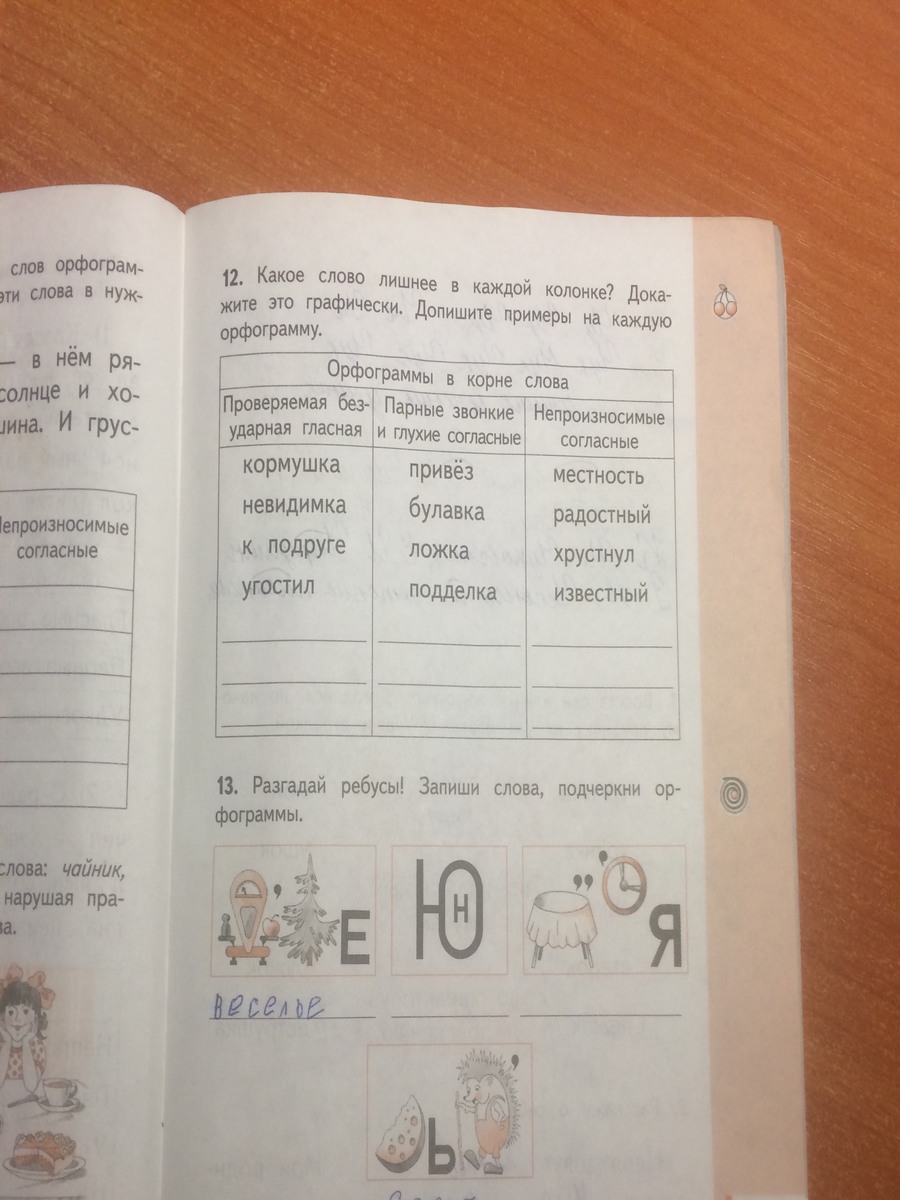 слов орфограм-
эти слова в нуж-
— в нём ря-
солнце и хо-
шина. И грус-
Непроизносимые
согласные
слова: чайник,
нарушая пра-
ва.
12. Какое слово лишнее в каждой колонке? Дока-
жите это графически. Допишите примеры на каждую
орфограмму.
Орфограммы в корне слова
Проверяемая без-
ударная гласная
Парные звонкие
и глухие согласные
Непроизносимые
согласные
кормушка привёз местность
невидимка булавка радостный
к подруге ложка хрустнул
угостил подделка известный
13. Разгадай ребусы! Запиши слова, подчеркни ор-
фограммы.
, Е Ю н ,, , Я
веселье
ь ,